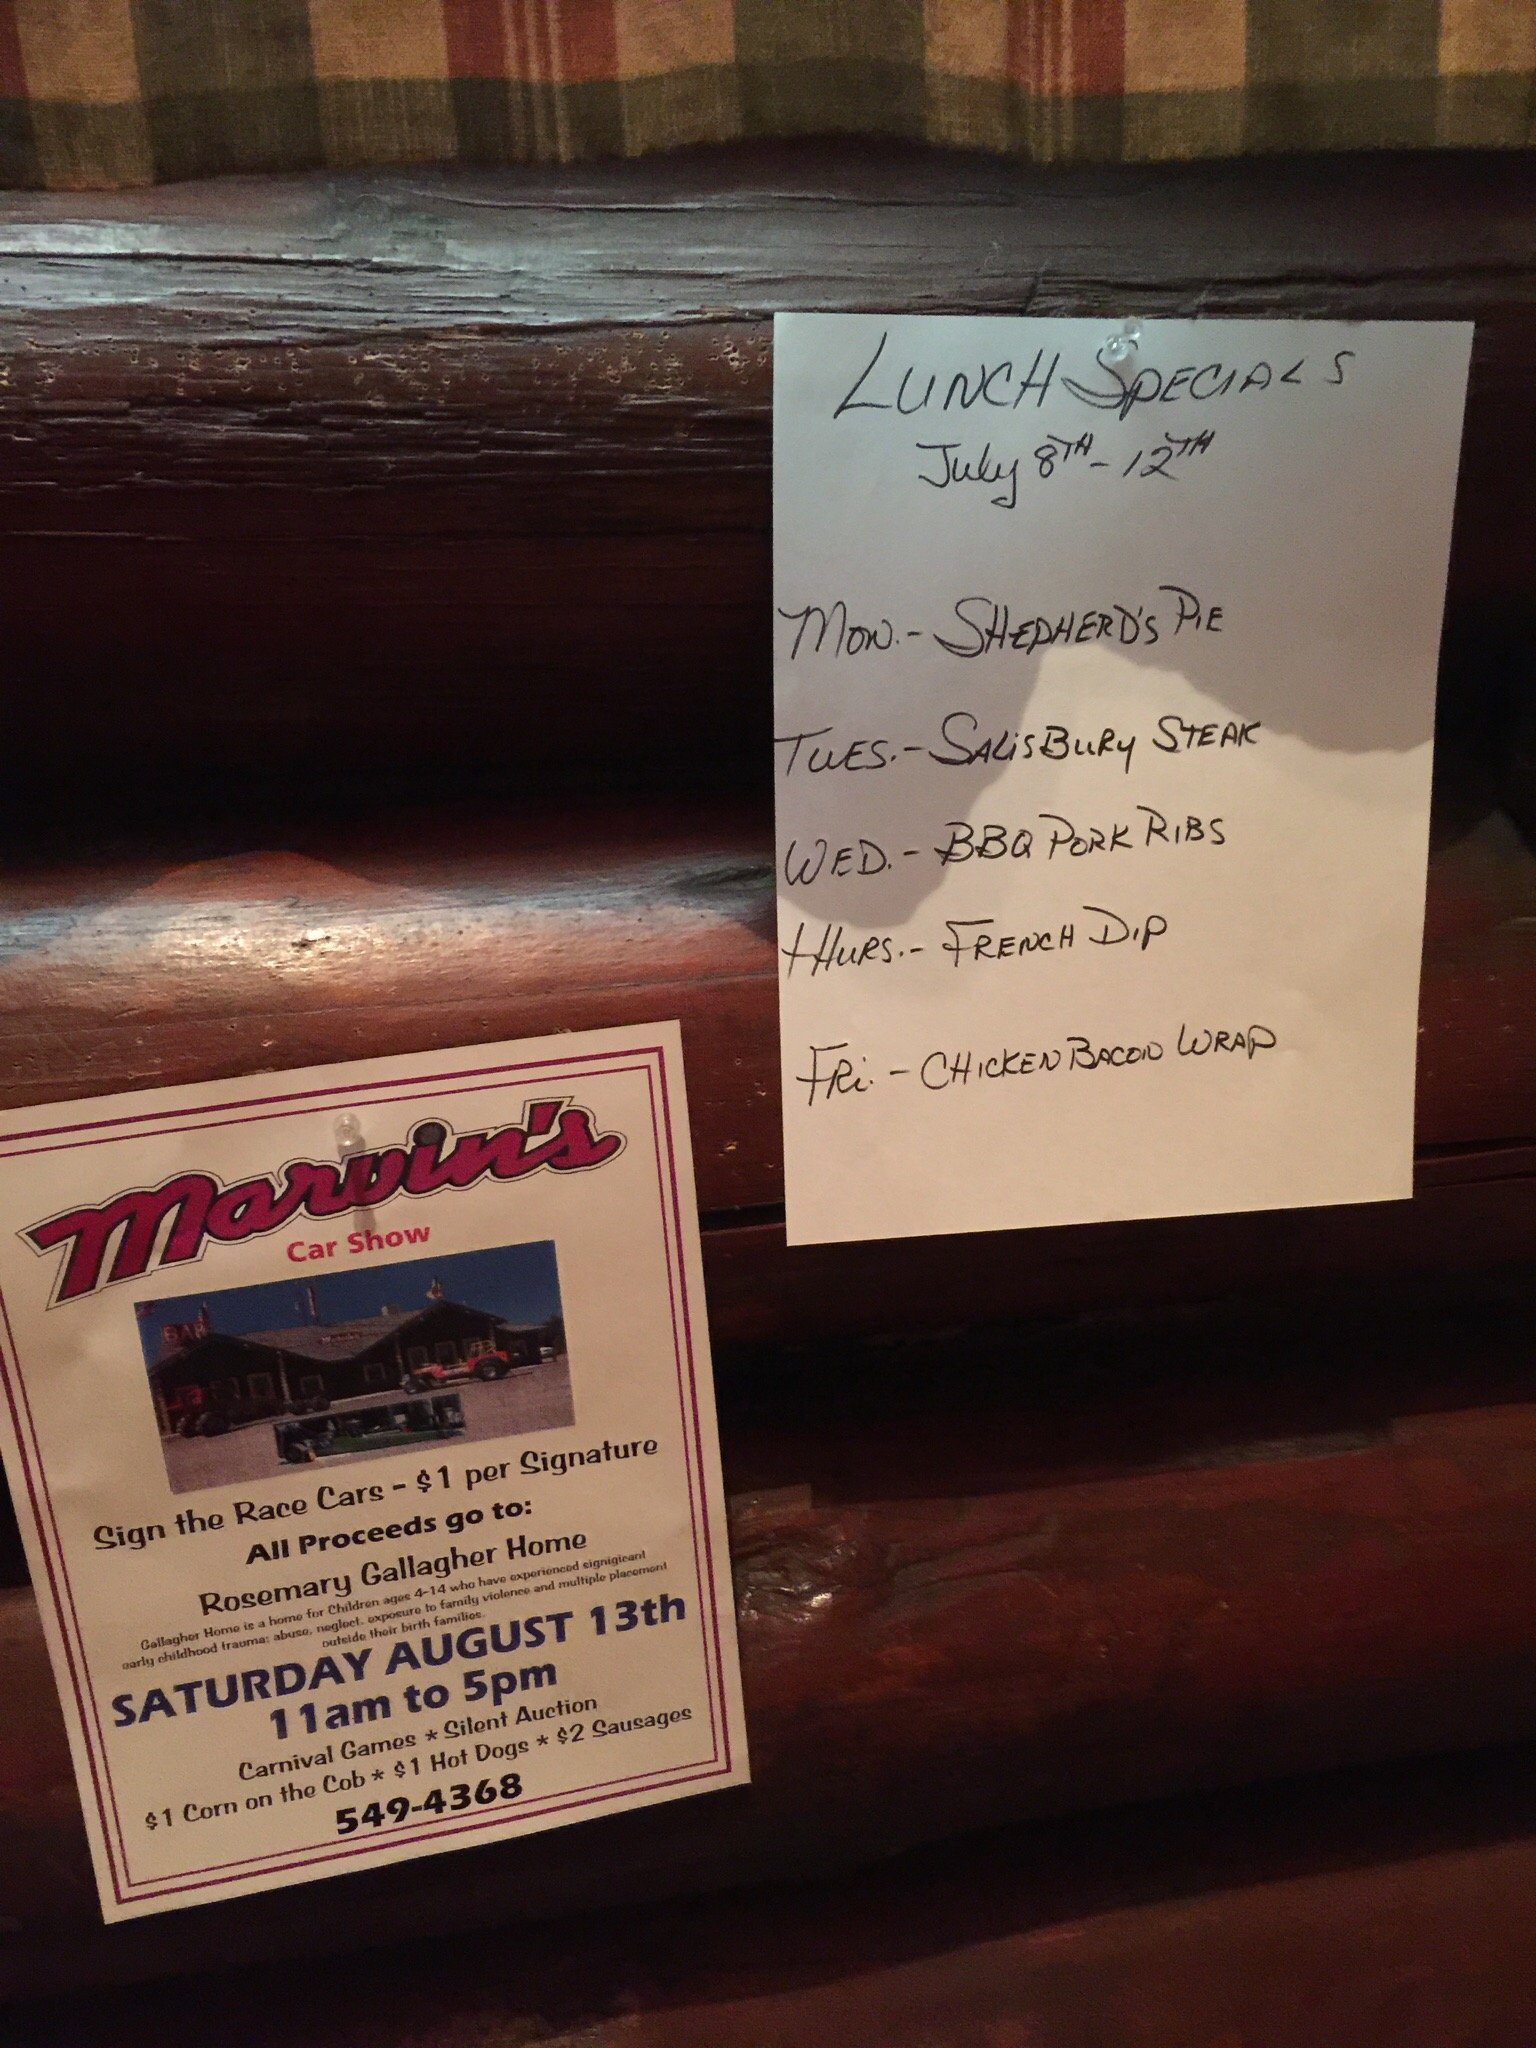 LUNCH SPECIALS
July 8TH - 12TH
MON. - SHEPHERD'S PIE
TUES. - SALISBURY STEAK
WED. - BBQ PORK RIBS
THURS. - FRENCH DIP
FRI. - CHICKEN BACON WRAP
Marvin's
Car Show
BAR
Sign the Race Cars - $1 per Signature
All Proceeds go to:
Rosemary Gallagher Home
Gallagher Home is a home for Children ages 4-14 who have experienced signigicant
early childhood trauma: abuse, neglect, exposure to family violence and multiple placement
outside their birth families.
SATURDAY AUGUST 13th
11am to 5pm
Carnival Games * Silent Auction
$1 Corn on the Cob * $1 Hot Dogs * $2 Sausages
549-4368